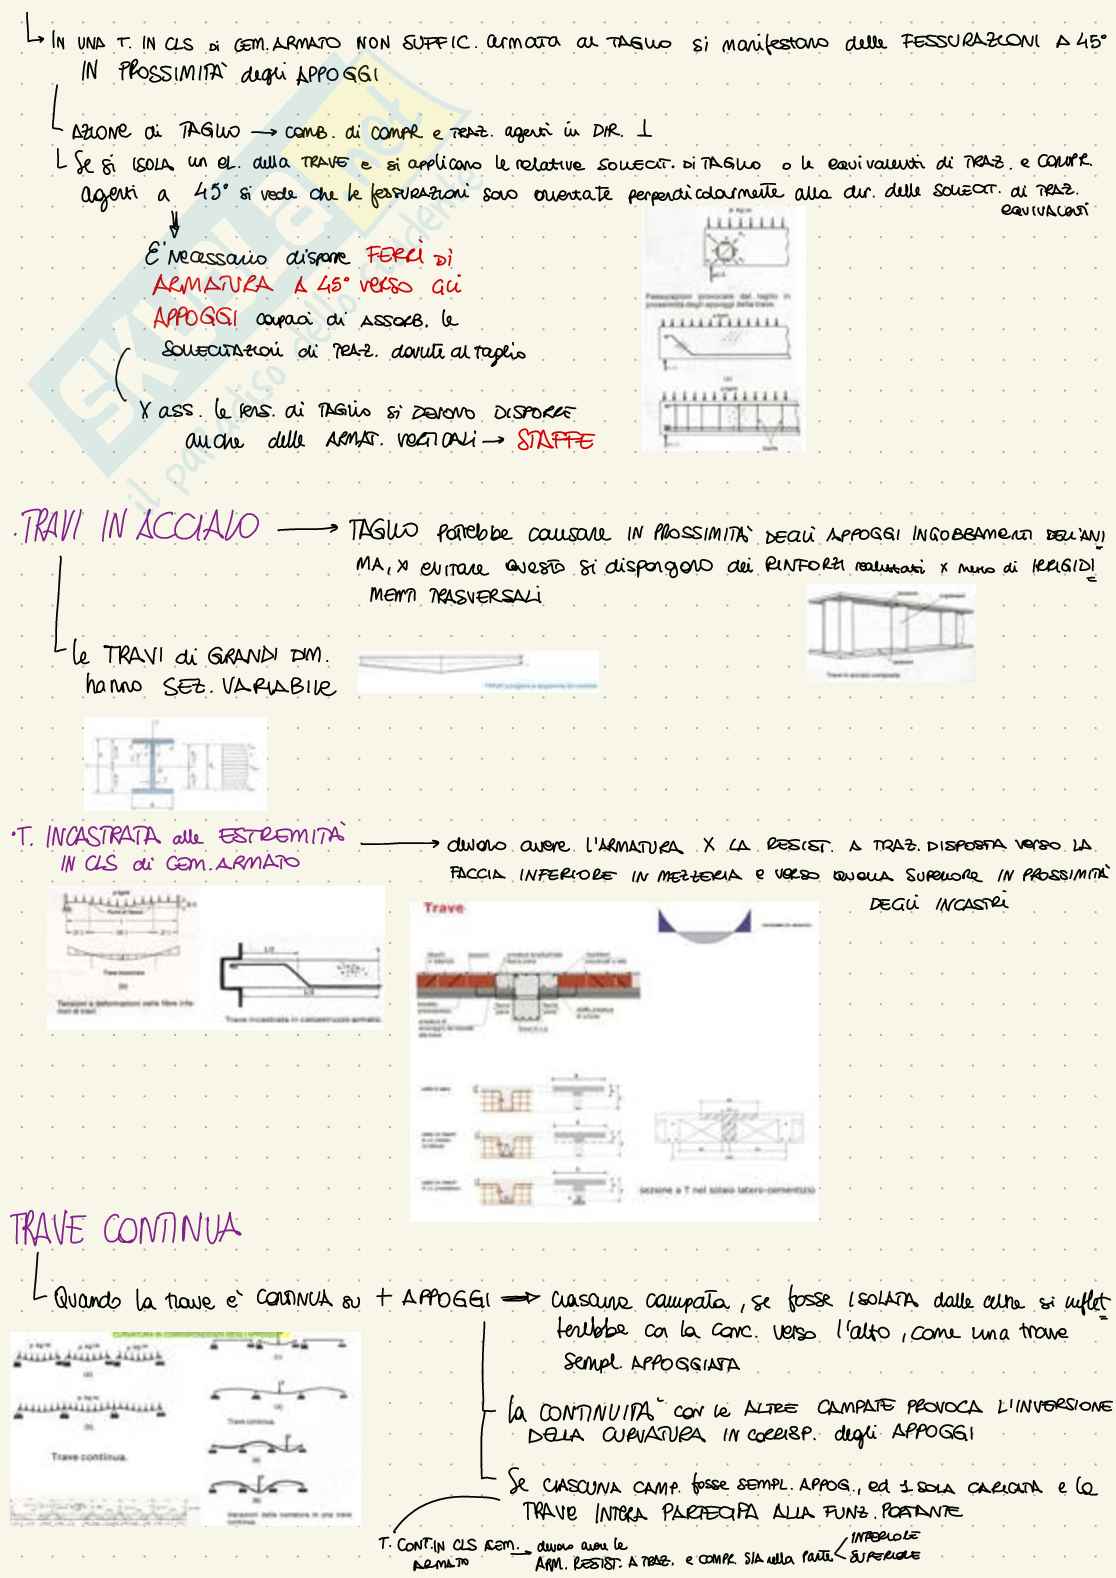 IN UNA T. IN CLS di CEM. ARMATO NON SUFFIC. armata al TAGLIO si manifestano delle FESSURAZIONI A 45°
IN PROSSIMITÀ degli APPOGGI
AZIONE di TAGLIO → COMB. di COMPR e TRAZ. agenti in DIR. ⊥
Se si ISOLA un el. della TRAVE e si applicano le relative SOLLECIT. DI TAGLIO o le equivalenti di TRAZ. e COMPR.
agenti a 45° si vede che le fessurazioni sono orientate perpendicolarmente alla dir. delle SOLLECIT. di TRAZ.
EQUIVALENTI
È necessario disporre FERRI DI
ARMATURA A 45° VERSO GLI
APPOGGI capaci di ASSORB. le
SOLLECITAZIONI di TRAZ. dovute al Taglio
X ass. le tens. di TAGLIO si DEVONO DISPORRE
anche delle ARMAT. VERTICALI → STAFFE
Fessurazioni provocate dal taglio in
prossimità degli appoggi della trave.
• TRAVI IN ACCIAIO → TAGLIO POTREBBE causare IN PROSSIMITÀ DEGLI APPOGGI INGOBBAMENTI DELL'ANI
MA, X evitare QUESTO si dispongono dei RINFORZI realizzati X mezzo di IRRIGIDI
MENTI TRASVERSALI
le TRAVI di GRANDI DIM.
hanno SEZ. VARIABILE
Trave in acciaio composta
• T. INCASTRATA alle ESTREMITÀ
IN CLS di CEM. ARMATO
→ devono avere L'ARMATURA X LA RESIST. A TRAZ. DISPOSTA verso LA
FACCIA INFERIORE IN MEZZERIA e VERSO QUELLA SUPERIORE IN PROSSIMITÀ
DEGLI INCASTRI
Trave incastrata
(b)
Tensioni e deformazioni nelle fibre infe-
riori di travi
L/5
Trave incastrata in calcestruzzo armato.
Trave
sezione a T nel solaio latero-cementizio
TRAVE CONTINUA
Quando la trave è CONTINUA su + APPOGGI ⇒ ciascuna campata, se fosse ISOLATA dalle altre si inflet
terebbe con la conc. verso l'alto, come una trave
sempl. APPOGGIATA
la CONTINUITÀ con le ALTRE CAMPATE PROVOCA L'INVERSIONE
DELLA CURVATURA IN CORRISP. degli APPOGGI
Se CIASCUNA CAMP. fosse SEMPL. APPOG., ed 1 SOLA CARICATA e la
TRAVE INTERA PARTECIPA ALLA FUNZ. PORTANTE
p kg/m
(a)
p kg/m
(b)
Trave continua.
(c)
(d)
Trave continua.
Variazioni della curvatura in una trave
continua.
T. CONT. IN CLS CEM. ARMATO → devono avere le
ARM. RESIST. A TRAZ. e COMPR. SIA nella parte
INFERIORE
SUPERIORE
SKUOLA.net
il paradiso dello studente